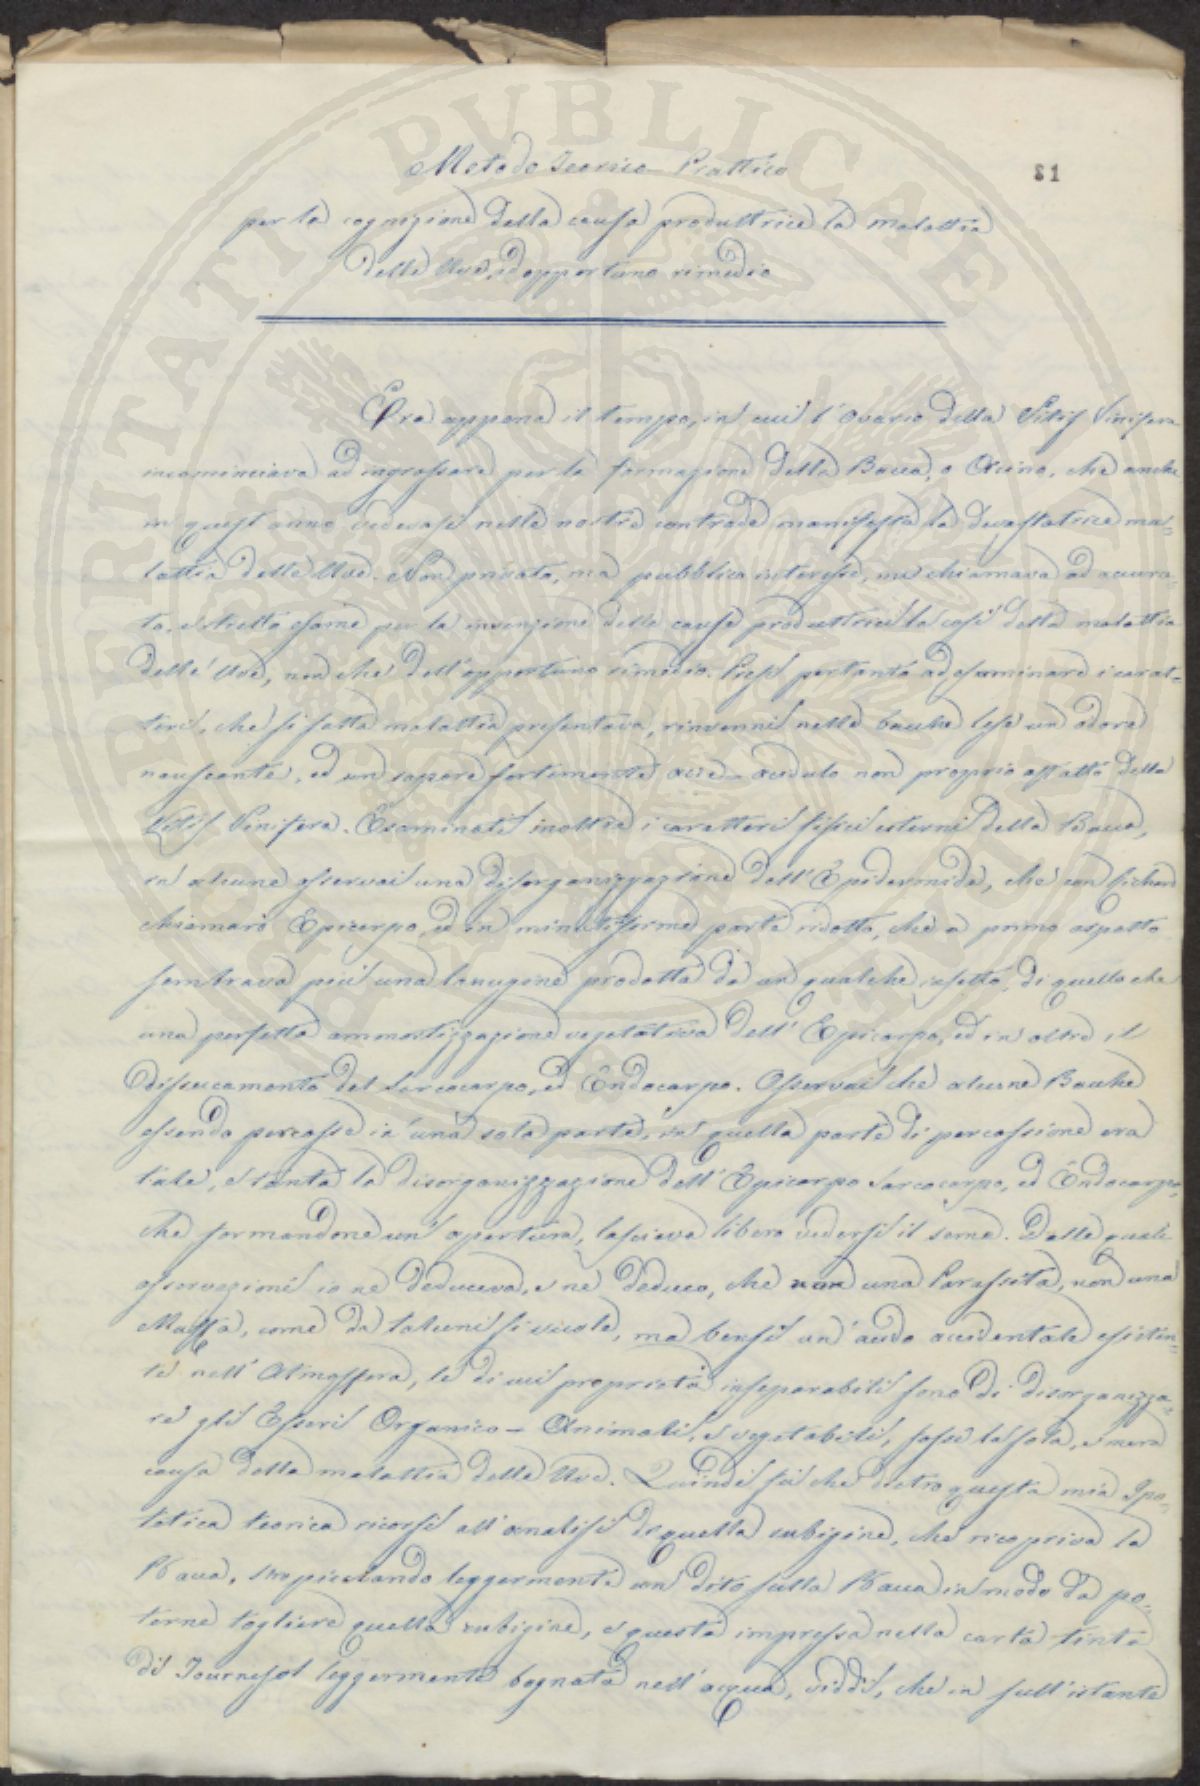 Metodo Teorico-Prattico
81
per la cognizione della causa produttrice la malattia
delle Uve, ed opportuno rimedio
Era appena il tempo, in cui l'Ovario della Vitis Vinifera
incominciava ad ingrossare per la formazione della Bacca, o Acino, che anche
in quest'anno vedevasi nelle nostre contrade manifesta la devastatrice ma=
lattia delle Uve. Non privato, ma pubblico interesse, mi chiamava ad accura=
to, e stretto esame per la invenzione delle cause produttrici la così detta malattia
delle Uve, non che dell'opportuno rimedio. Presi pertanto ad esaminare i carat=
teri, che sì fatta malattia presentava, rinvenni nelle bacche lese un odore
nauseante, ed un sapore fortemente acre-acidulo non proprio affatto della
Vitis Vinifera. Esaminati inoltre i caratteri fisici esterni della Bacca,
in alcune osservai una disorganizzazione dell'Epidermide, che con Richard
chiamarò Epicarpo, ed in minutissime parte ridotto, che a primo aspetto
sembrava più una lanugine prodotta da un qualche insetto, di quello che
una perfetta ammortizzazione vegetativa dell'Epicarpo, ed in altre il
disseccamento del Sarcocarpo, ed Endocarpo. Osservai che alcune Bacche
essendo percosse in una sola parte, in quella parte di percossione era
tale, e tanta la disorganizzazione dell'Epicarpo Sarcocarpo, ed Endocarpo,
che formandone un'apertura, lasciava libero vedersi il seme. Dalle quali
osservazioni io ne deduceva, e ne deduco, che non una Parassita, non una
Muffa, come da taluni si vuole, ma bensì un'acido accidentale esisten=
te nell'Atmosfera, le di cui proprietà inseparabili sono di disorganizza=
re gli Esseri Organico-Animali, e vegetabili, fosse la sola, e mera
causa della malattia delle Uve. Quindi fù che dietro questa mia Ipo=
tetica teorica ricorsi all'analisi di quella rubigine, che ricopriva la
Bacca, stropicciando leggermente con dito sulla Bacca in modo da po=
terne togliere quella rubigine, e questa impressa nella carta tinta
di Tournesol leggermente bagnata nell'acqua, viddi, che in sull'istante